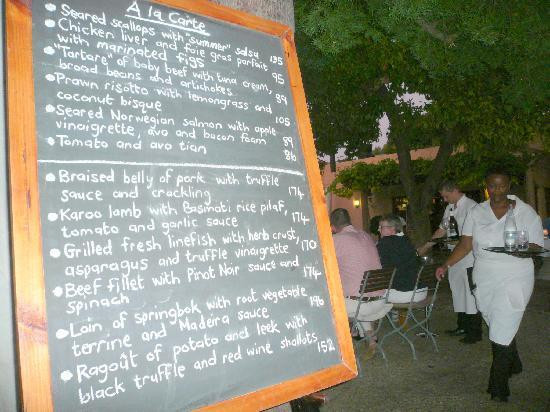 A la Carte
• Seared scallops with "summer" salsa 135
• Chicken liver and foie gras parfait
with marinated figs 95
• "Tartare" of baby beef with tuna cream,
broad beans and artichokes 99
• Prawn risotto with lemongrass and
coconut bisque 105
• Seared Norwegian salmon with apple
vinaigrette, avo and bacon foam 99
• Tomato and avo tian 86
• Braised belly of pork with truffle
sauce and crackling 174
• Karoo lamb with Basmati rice pilaf,
tomato and garlic sauce 174
• Grilled fresh linefish with herb crust,
asparagus and truffle vinaigrette 170
• Beef fillet with Pinot Noir sauce and
spinach 174
• Loin of springbok with root vegetable
terrine and Madeira sauce 196
• Ragoût of potato and leek with
black truffle and red wine shallots 152